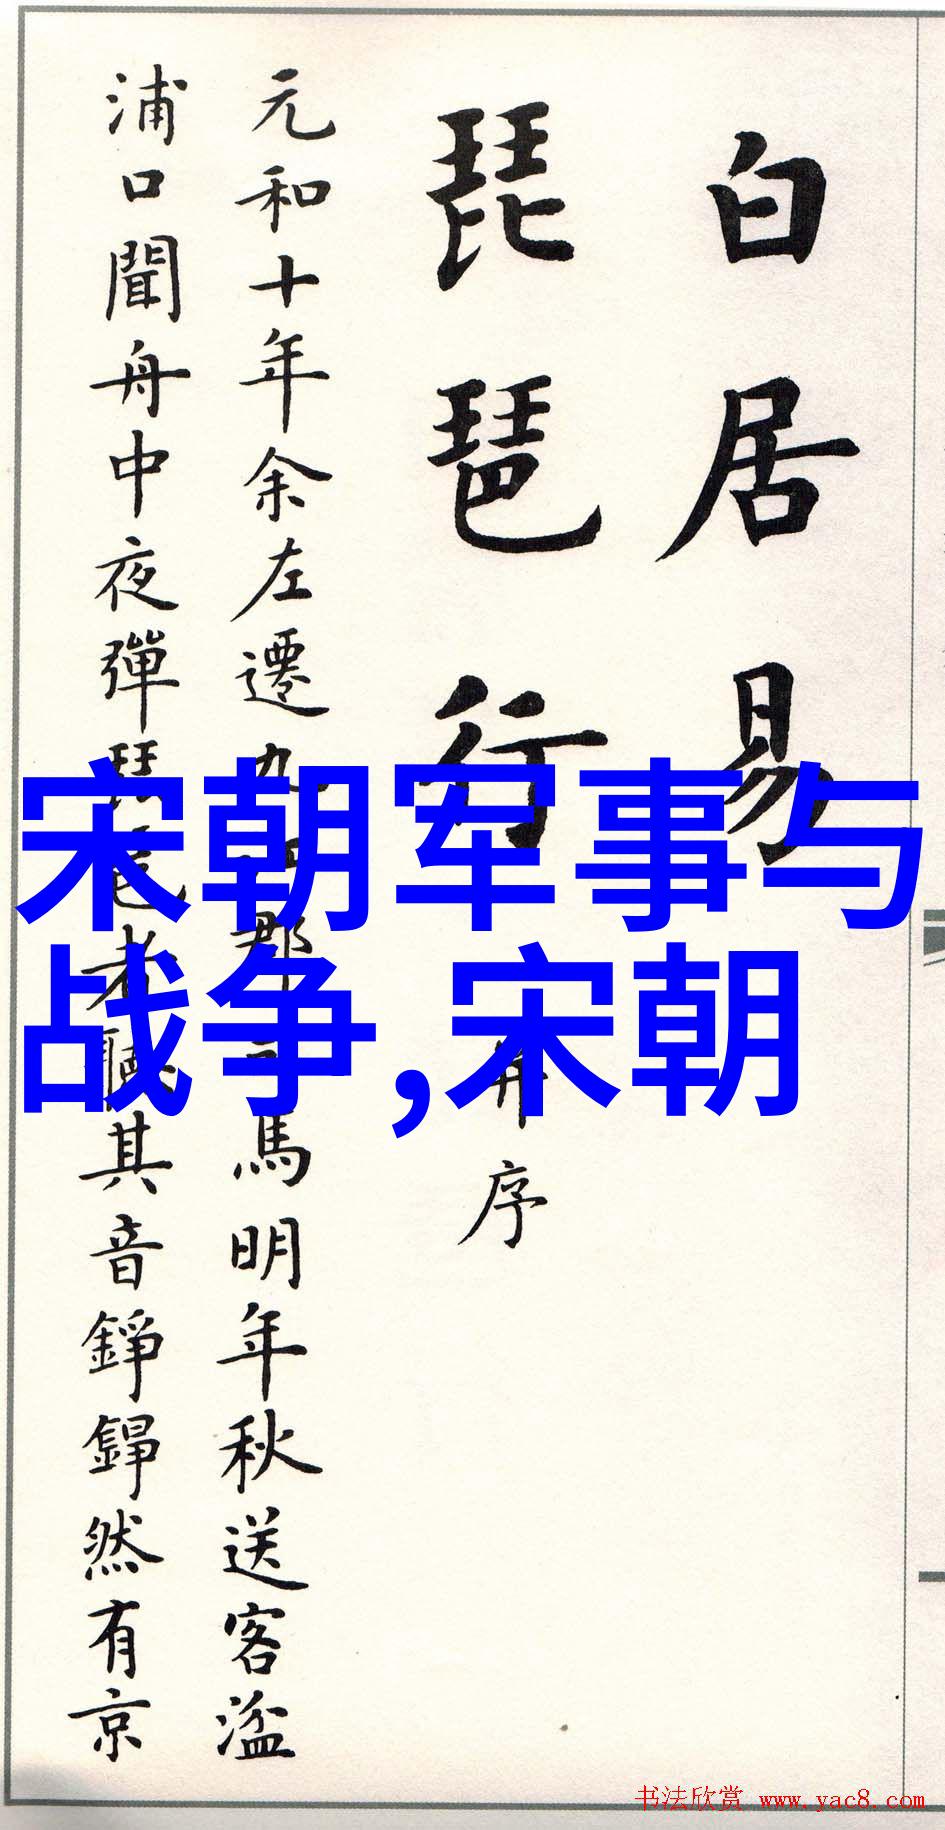 白居易
琵琶行 并序
元和十年余左遷九郡馬明年秋送客湓
浦口聞舟中夜彈琵琶者聽其音錚錚然有京
宋朝军事与
战争,宋朝
书法欣赏 www.yac8.com